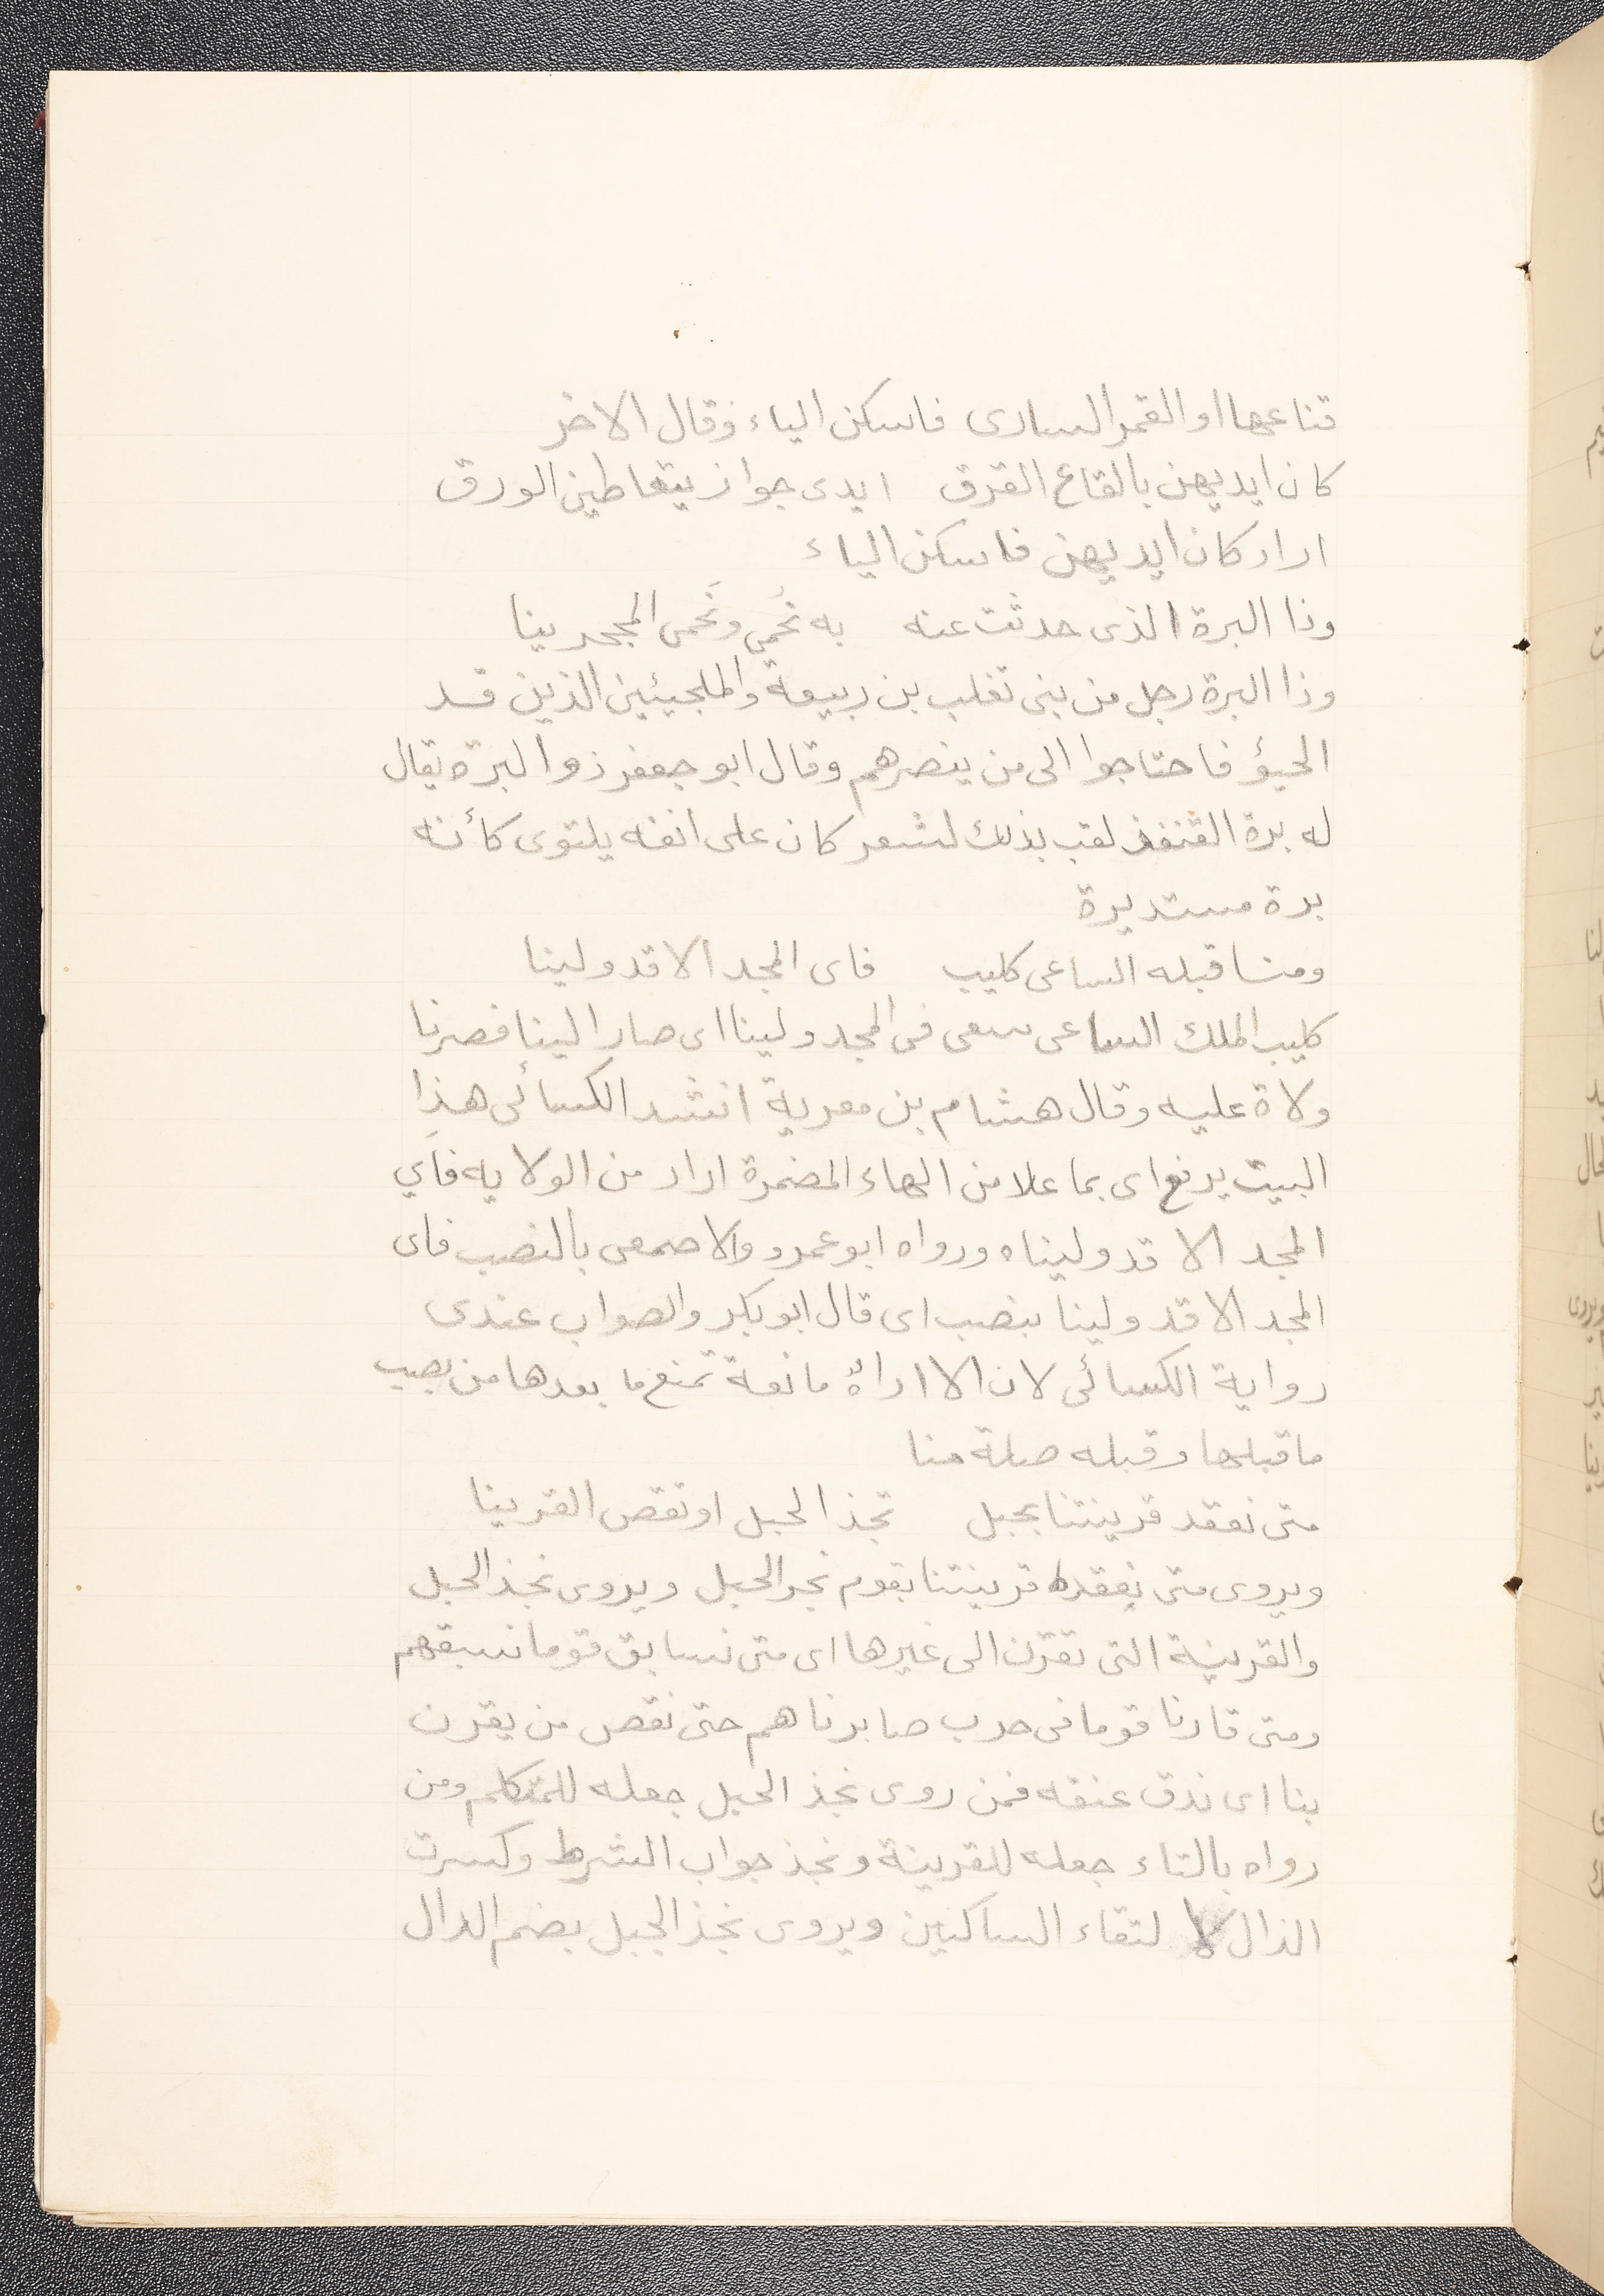 قناعها او القمر السارى فاسكن الياء وقال الاخر
كان ايديهن بالقاع القرق ايدى جوار يتعاطين الورق
اراد كان ايديهن فاسكن الياء
وذا البرة الذى حدثت عنه به نُحمى ونَحمى المجحرينا
وذا البرة رجل من بنى تغلب بن ربيعة والملجيئين الذين قد
الجيؤ فاحتاجوا الى من ينصرهم وقال ابو جعفر ذو البرة يقال
له برة القنفذ لقب بذلك لشعر كان على انفه يلتوى كأنه
برة مستديرة
ومنا قبله الساعى كليب فاى المجد الا قد ولينا
كليب الملك الساعى سعى فى المجد ولينا اى صار الينا فصرنا
ولاة عليه وقال هشام بن معوية انشد الكسائى هذا
البيت يرفع اى بما علا من الهاء المضمرة اراد من الولايه فاَي
المجد الا قد وليناه ورواه ابو عمرو والاصمعى بالنصب فاى
المجد الا قد ولينا بنصب اى قال ابو بكر والصواب عندى
رواية الكسائى لان الا اداة مانعة تمنع ما بعدها من نصب
ما قبلها وقبله صلة منا
متى نعقد قرينتنا بحبل تجذ الحبل او تقص القرينا
ويروى متى نعقد قرينتنا بقوم نجز الحبل ويروى نجذ الحبل
والقرينة التى تقرن الى غيرها اى متى نسابق قوما نسبقهم
ومتى قارنا قوما فى حرب صابرناهم حتى نقص من يقرن
بنا اى ندق عنقه فمن روى نجذ الحبل جعله للمتكلم ومن
رواه بالتاء جعله للقرينة ونجذ جواب الشرط وكسرت
الذال لا لتقاء الساكنين ويروى نجذ الحبل بضم الدال